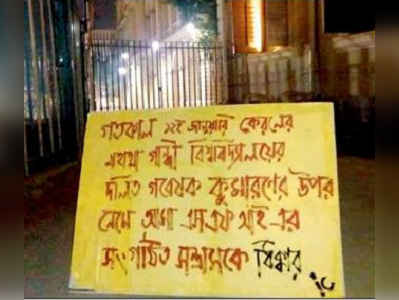 গতকাল ১২ই জানুয়ারি কেরলের
মহাত্মা গান্ধী বিশ্ববিদ্যালয়ের
দলিত গবেষক কুমারণের উপর
নেমে আসা এসএফ আই এর
সংগঠিত সন্ত্রাসকে ধিক্কার